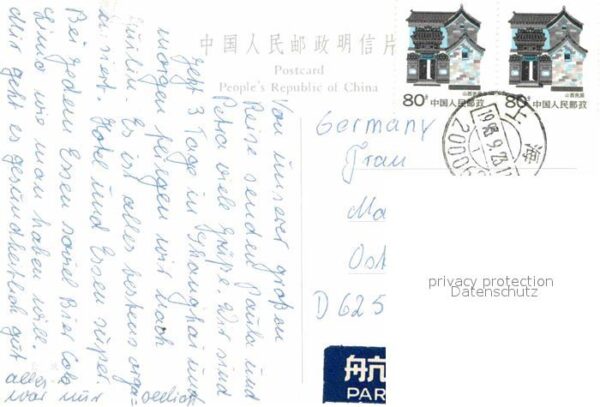 中国人民邮政明信片
Postcard
People's Republic of China
山西民居
80分 中国人民邮政
山西民居
80分 中国人民邮政
上海
1993.9.23
20000
Von unserer großen
Reise senden Paula und
Petra viele Grüße. Wir sind
jetzt 3 Tage in Shanghai und
morgen fliegen wir nach
Guilin. Es ist alles bestens orga-
nisiert. Hotel und Essen super
Bei jedem Essen soviel Bier Cola
Limo wie man haben will.
Mir geht es gesundheitlich gut
alles
war nur
Germany
Frau
Ma
Ost
D 625
privacy protection
Datenschutz
航
PAR